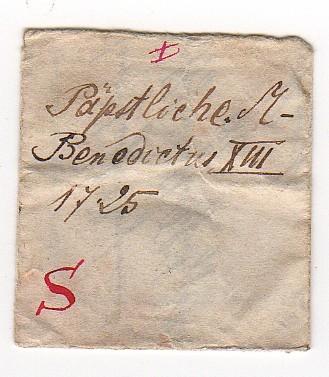 I
Päpstliche. M-
Benedictus XIII
1725
S